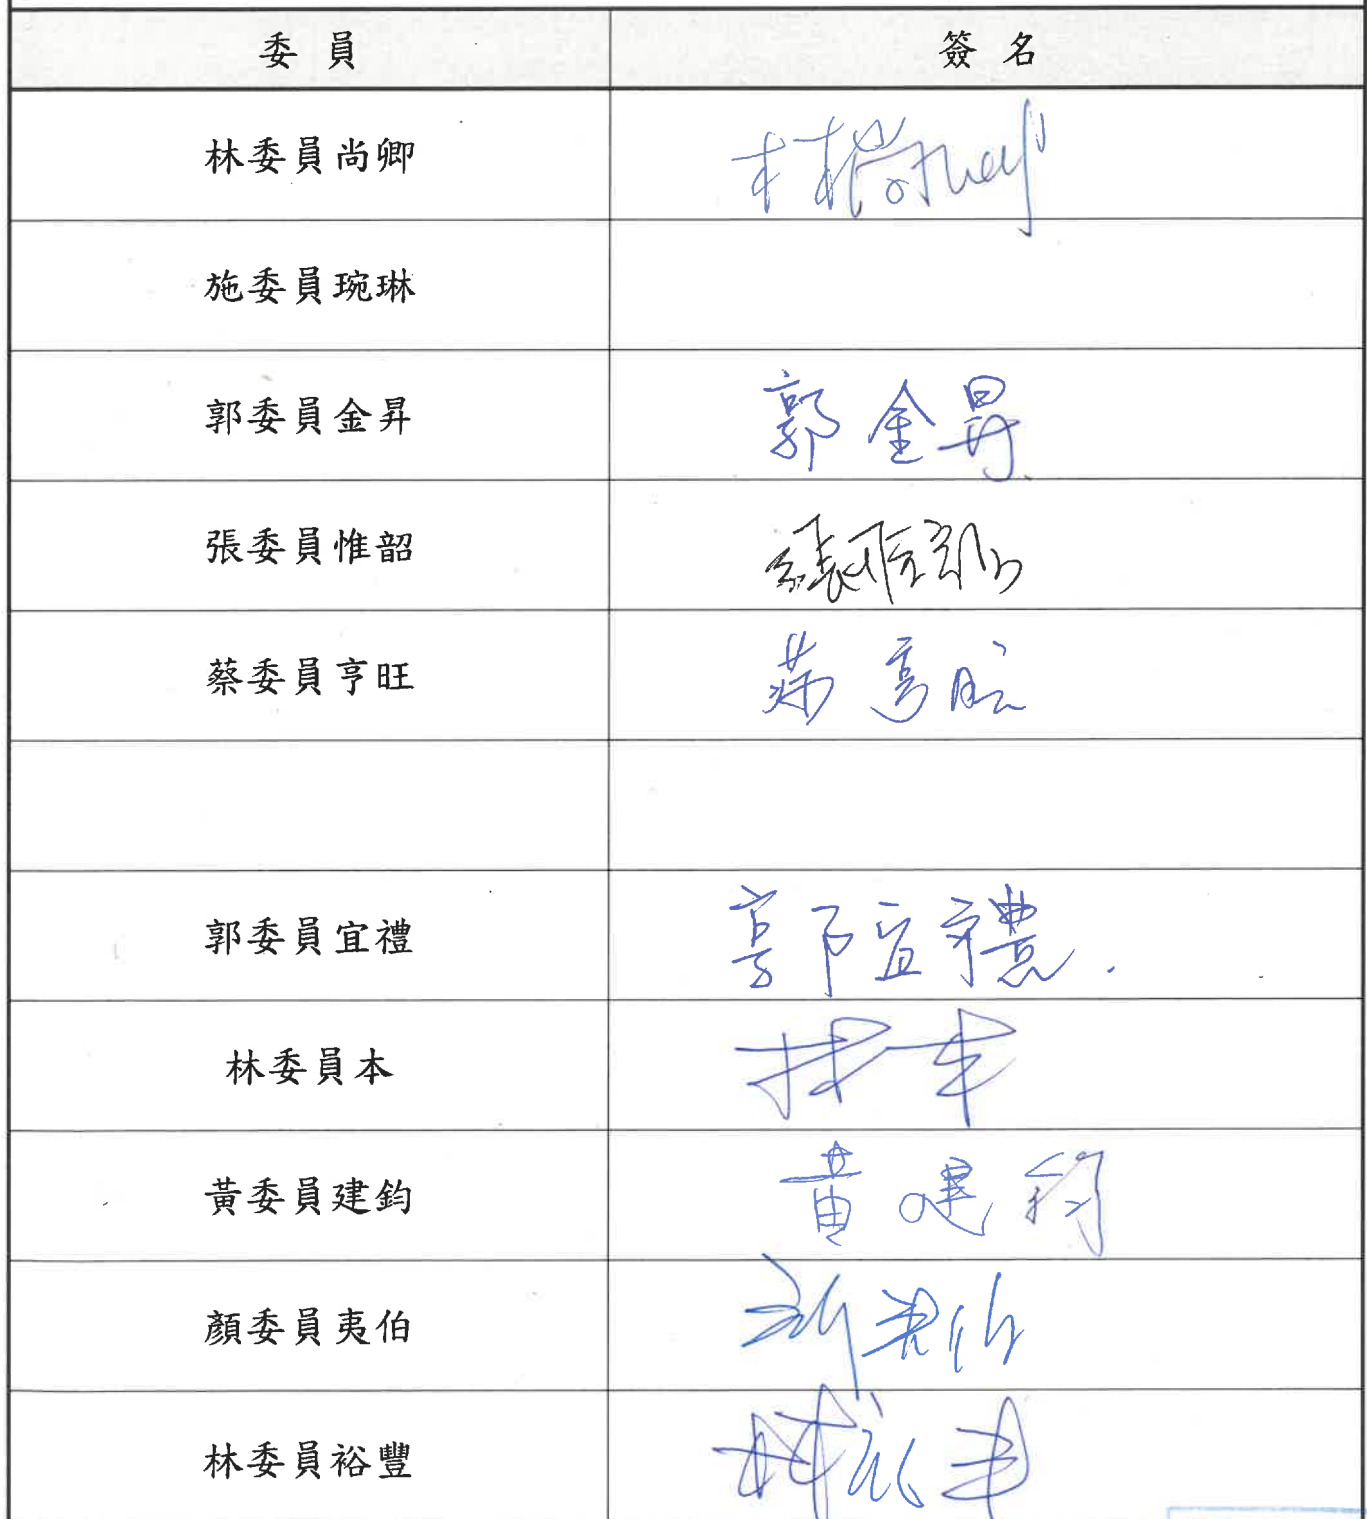 委員 簽名
林委員尚卿 林尚卿
施委員琬琳
郭委員金昇 郭金昇
張委員惟韶 張惟韶
蔡委員亨旺 蔡亨旺
郭委員宜禮 郭宜禮
林委員本 林本
黃委員建鈞 黃建鈞
顏委員夷伯 顏夷伯
林委員裕豐 林裕豐